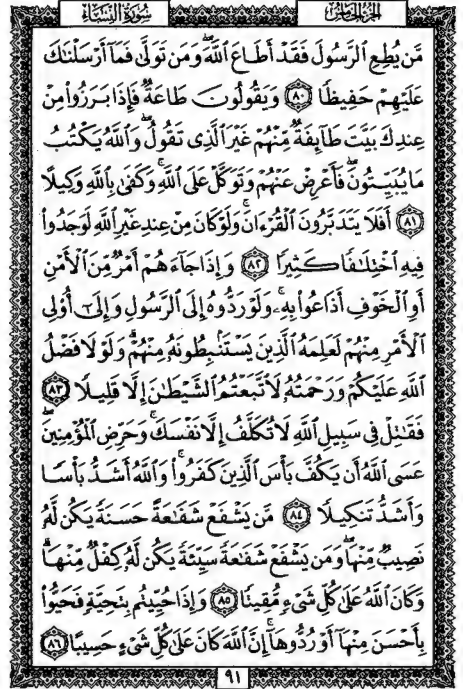 سُورَةُ النِّسَاءِ الجزء الخامس
مَّن يُطِعِ ٱلرَّسُولَ فَقَدْ أَطَاعَ ٱللَّهَۖ وَمَن تَوَلَّىٰ فَمَآ أَرْسَلْنَٰكَ
عَلَيْهِمْ حَفِيظًا ٨٠ وَيَقُولُونَ طَاعَةٌ فَإِذَا بَرَزُوا۟ مِنْ
عِندِكَ بَيَّتَ طَآئِفَةٌ مِّنْهُمْ غَيْرَ ٱلَّذِى تَقُولُۖ وَٱللَّهُ يَكْتُبُ
مَا يُبَيِّتُونَۖ فَأَعْرِضْ عَنْهُمْ وَتَوَكَّلْ عَلَى ٱللَّهِۚ وَكَفَىٰ بِٱللَّهِ وَكِيلًا
٨١ أَفَلَا يَتَدَبَّرُونَ ٱلْقُرْءَانَۚ وَلَوْ كَانَ مِنْ عِندِ غَيْرِ ٱللَّهِ لَوَجَدُوا۟
فِيهِ ٱخْتِلَٰفًا كَثِيرًا ٨٢ وَإِذَا جَآءَهُمْ أَمْرٌ مِّنَ ٱلْأَمْنِ
أَوِ ٱلْخَوْفِ أَذَاعُوا۟ بِهِۦۖ وَلَوْ رَدُّوهُ إِلَى ٱلرَّسُولِ وَإِلَىٰٓ أُو۟لِى
ٱلْأَمْرِ مِنْهُمْ لَعَلِمَهُ ٱلَّذِينَ يَسْتَنۢبِطُونَهُۥ مِنْهُمْۗ وَلَوْلَا فَضْلُ
ٱللَّهِ عَلَيْكُمْ وَرَحْمَتُهُۥ لَٱتَّبَعْتُمُ ٱلشَّيْطَٰنَ إِلَّا قَلِيلًا ٨٣
فَقَٰتِلْ فِى سَبِيلِ ٱللَّهِ لَا تُكَلَّفُ إِلَّا نَفْسَكَۚ وَحَرِّضِ ٱلْمُؤْمِنِينَۖ
عَسَى ٱللَّهُ أَن يَكُفَّ بَأْسَ ٱلَّذِينَ كَفَرُوا۟ۚ وَٱللَّهُ أَشَدُّ بَأْسًا
وَأَشَدُّ تَنكِيلًا ٨٤ مَّن يَشْفَعْ شَفَٰعَةً حَسَنَةً يَكُن لَّهُۥ
نَصِيبٌ مِّنْهَاۖ وَمَن يَشْفَعْ شَفَٰعَةً سَيِّئَةً يَكُن لَّهُۥ كِفْلٌ مِّنْهَاۗ
وَكَانَ ٱللَّهُ عَلَىٰ كُلِّ شَىْءٍ مُّقِيتًا ٨٥ وَإِذَا حُيِّيتُم بِتَحِيَّةٍ فَحَيُّوا۟
بِأَحْسَنَ مِنْهَآ أَوْ رُدُّوهَآۗ إِنَّ ٱللَّهَ كَانَ عَلَىٰ كُلِّ شَىْءٍ حَسِيبًا ٨٦
٩١